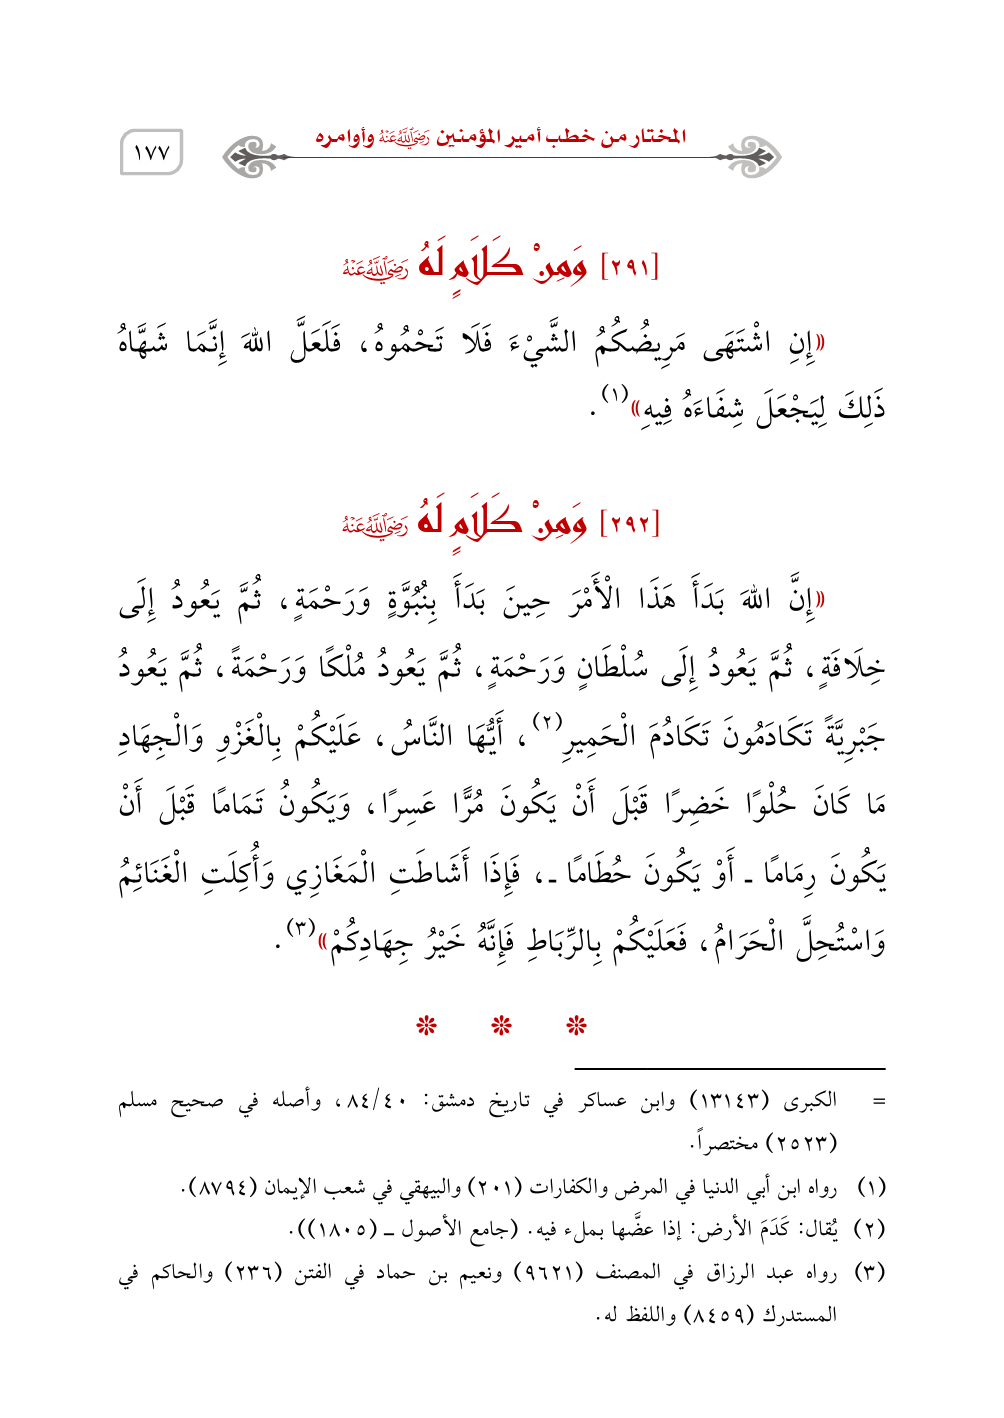 المختار من خطب أمير المؤمنين رَضِيَ اللَّهُ عَنْهُ وأوامره
١٧٧
[٢٩١] وَمِنْ كَلَامٍ لَهُ رَضِيَ اللَّهُ عَنْهُ
«إِنِ اشْتَهَى مَرِيضُكُمُ الشَّيْءَ فَلَا تَحْمُوهُ، فَلَعَلَّ اللهَ إِنَّمَا شَهَّاهُ
ذَلِكَ لِيَجْعَلَ شِفَاءَهُ فِيهِ»(١).
[٢٩٢] وَمِنْ كَلَامٍ لَهُ رَضِيَ اللَّهُ عَنْهُ
«إِنَّ اللهَ بَدَأَ هَذَا الْأَمْرَ حِينَ بَدَأَ بِنُبُوَّةٍ وَرَحْمَةٍ، ثُمَّ يَعُودُ إِلَى
خِلَافَةٍ، ثُمَّ يَعُودُ إِلَى سُلْطَانٍ وَرَحْمَةٍ، ثُمَّ يَعُودُ مُلْكًا وَرَحْمَةً، ثُمَّ يَعُودُ
جَبْرِيَّةً تَكَادَمُونَ تَكَادُمَ الْحَمِيرِ(٢)، أَيُّهَا النَّاسُ، عَلَيْكُمْ بِالْغَزْوِ وَالْجِهَادِ
مَا كَانَ حُلْوًا خَضِرًا قَبْلَ أَنْ يَكُونَ مُرًّا عَسِرًا، وَيَكُونُ تَمَامًا قَبْلَ أَنْ
يَكُونَ رِمَامًا ـ أَوْ يَكُونَ حُطَامًا ـ، فَإِذَا أَشَاطَتِ الْمَغَازِي وَأُكِلَتِ الْغَنَائِمُ
وَاسْتُحِلَّ الْحَرَامُ، فَعَلَيْكُمْ بِالرِّبَاطِ فَإِنَّهُ خَيْرُ جِهَادِكُمْ»(٣).
= الكبرى (١٣١٤٣) وابن عساكر في تاريخ دمشق: ٨٤/٤٠، وأصله في صحيح مسلم
(٢٥٢٣) مختصراً.
(١) رواه ابن أبي الدنيا في المرض والكفارات (٢٠١) والبيهقي في شعب الإيمان (٨٧٩٤).
(٢) يُقال: كَدَمَ الأرض: إذا عضَّها بملء فيه. (جامع الأصول ـ (١٨٠٥)).
(٣) رواه عبد الرزاق في المصنف (٩٦٢١) ونعيم بن حماد في الفتن (٢٣٦) والحاكم في
المستدرك (٨٤٥٩) واللفظ له.